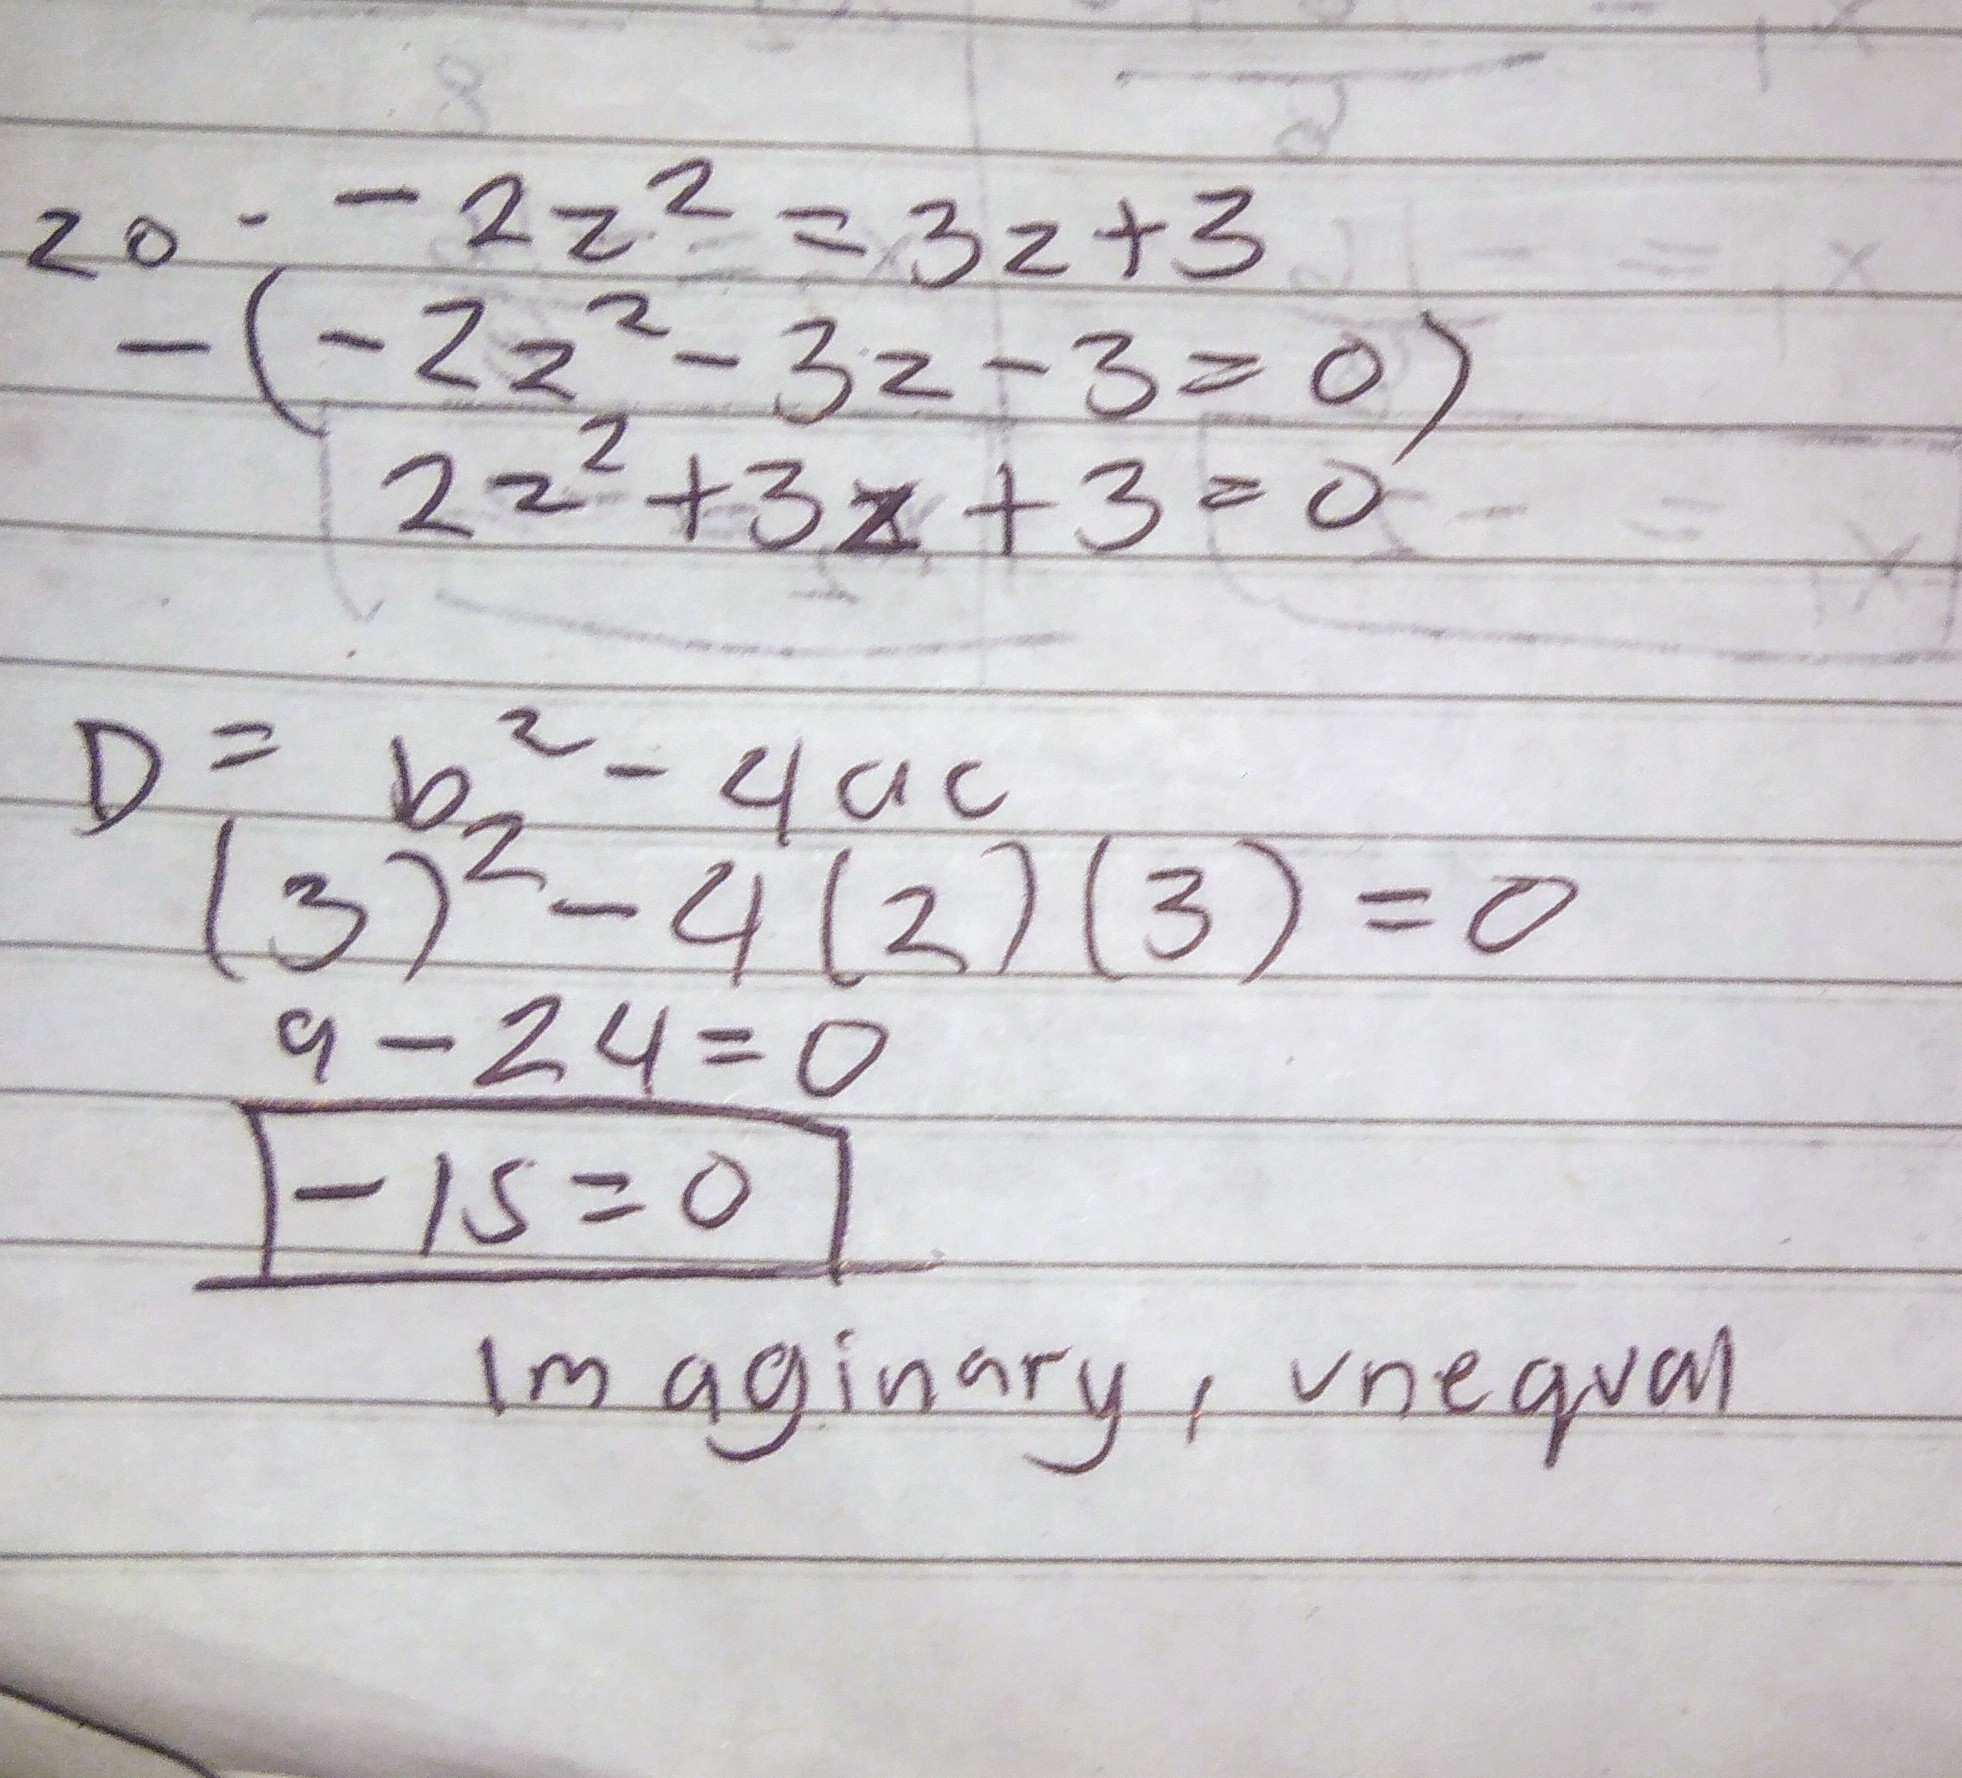 20. -2z² = 3z+3
-(-2z² - 3z - 3 = 0)
2z² + 3z + 3 = 0
D = b² - 4ac
(3)² - 4(2)(3) = 0
9 - 24 = 0
-15 = 0
Imaginary, unequal